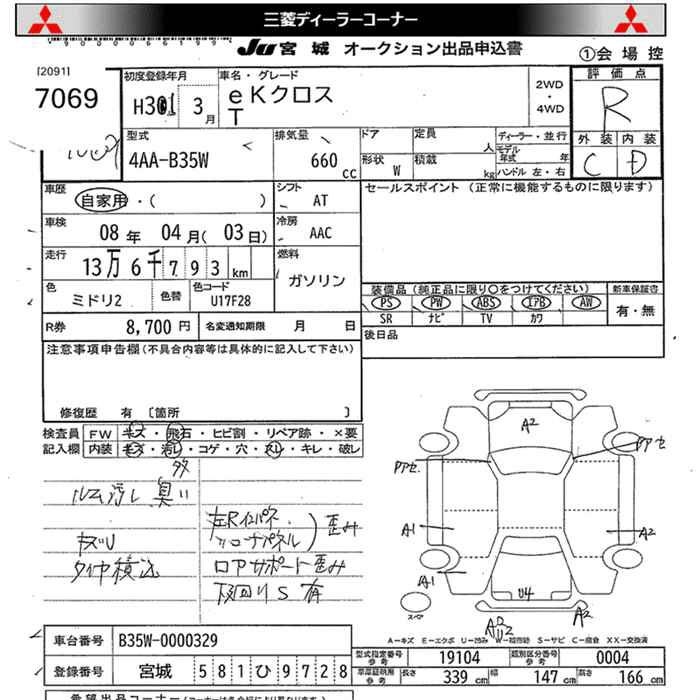 三菱ディーラーコーナー
JU 宮城 オークション出品申込書
①会場控
[2091]
7069
初度登録年月
H301 3月
車名・グレード
eKクロス
T
2WD
・
4WD
評価点
R
外装 内装
C D
型式
4AA-B35W
排気量
660 CC
ドア
形状 W
定員 人
積載 kg
ディーラー・並行
モデル年式 年
ハンドル 左・右
車歴
自家用・( )
シフト
AT
セールスポイント (正常に機能するものに限ります)
車検
08年 04月(03日)
冷房
AAC
走行
13万6千793km
燃料
ガソリン
色
ミドリ2
色替
色コード
U17F28
装備品(純正品に限り○をつけてください)
新車保証書
PS PW ABS エアB AW
有・無
SR ナビ TV カワ
R券 8,700円
名変通知期限 月 日
後日品
注意事項申告欄(不具合内容等は具体的に記入して下さい)
修復歴 有 〔箇所 〕
検査員
記入欄
FW キズ・飛石・ヒビ割・リペア跡・×要
内装 キズ・汚レ・コゲ・穴・スレ・キレ・破レ
タタ
ルーム汚レ 臭い
キズU
タイヤ積込
左Rインパネ
〃コーナパネル
歪み
ロアサポート歪み
下回りS有
A2
Pアセ
Pアセ
A1
A2
A1
U4
スペア
A2
A-キズ E-エクボ S-サビ C-腐食 XX-交換済
車台番号 B35W-0000329
登録番号 宮城 581ひ9728
型式指定番号
参考
19104
類別区分番号
参考
0004
参考
長さ 339 cm
幅 147 cm
高さ 166 cm
希望出品コーナー